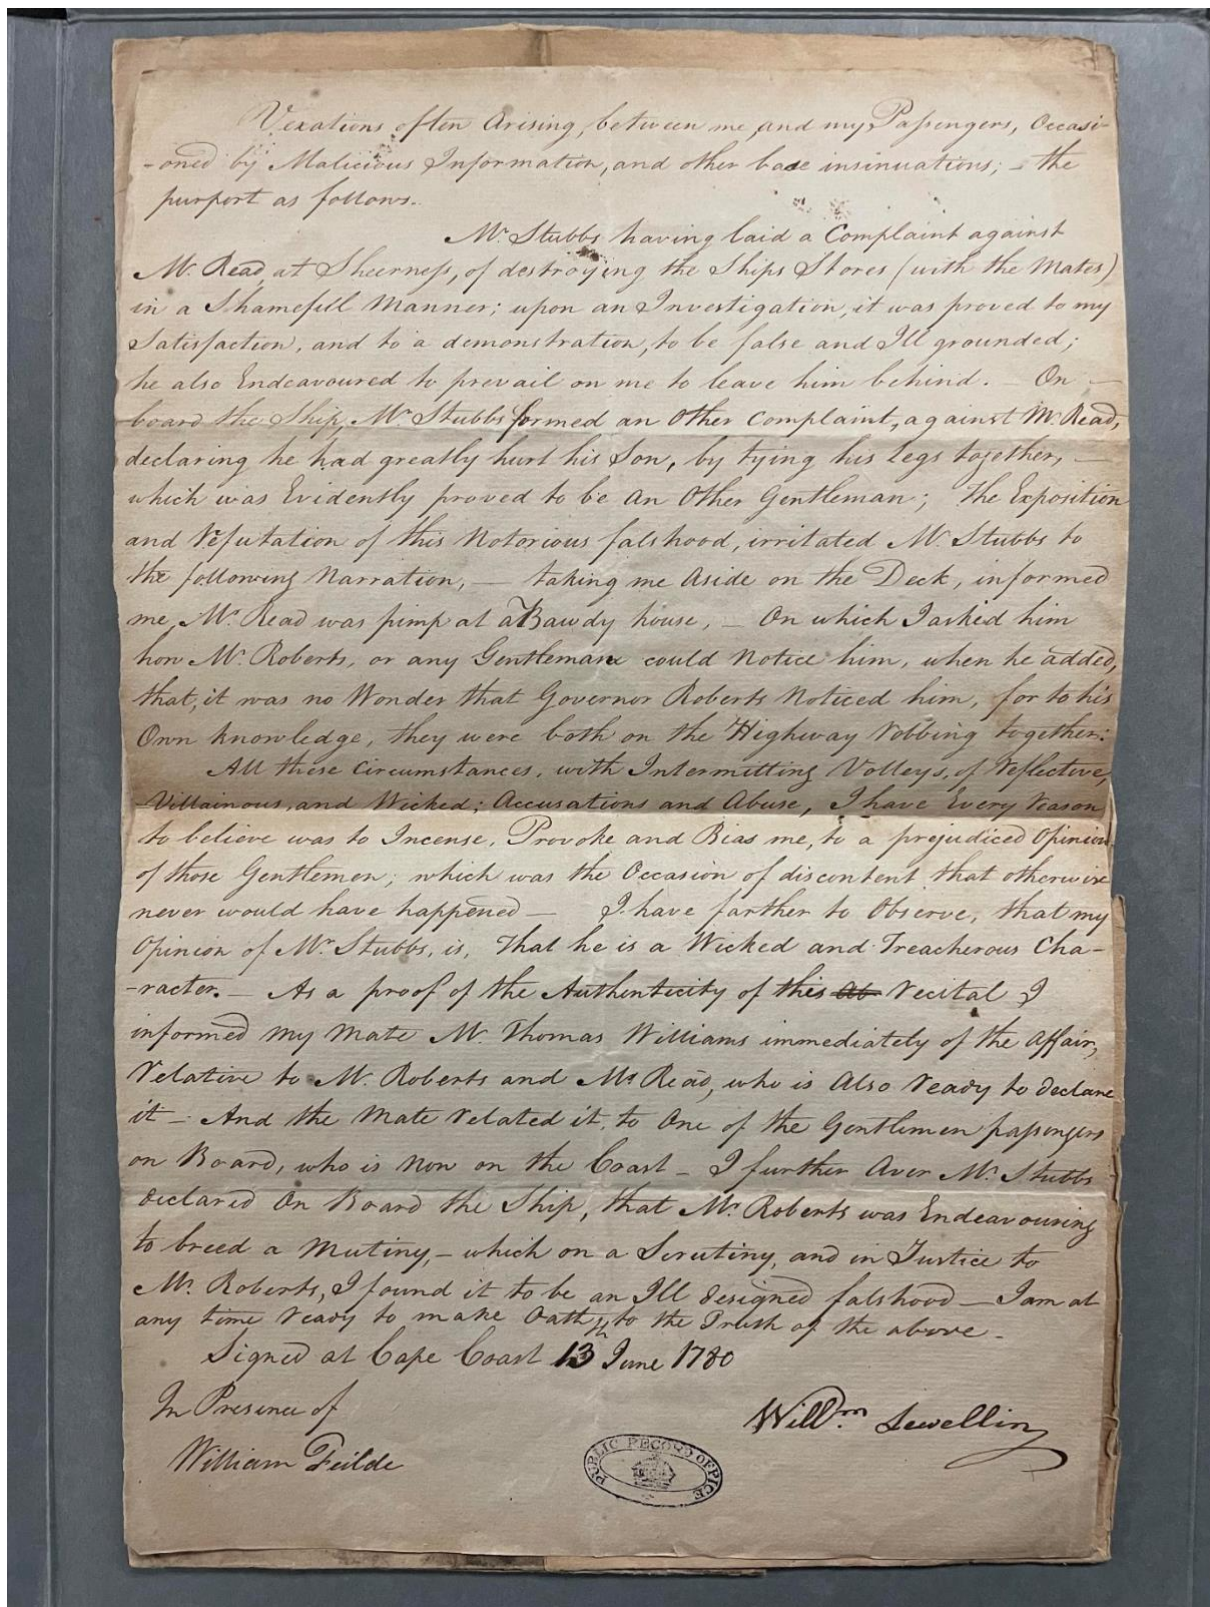 Vexations often Arising, between me, and my Passengers, Occasi-
-oned by Malicious Information, and other base insinuations; - the
purport as follows.
Mr. Stubbs having laid a Complaint against
Mr. Read at Sheerness, of destroying the Ships Stores (with the Mates)
in a Shamefull Manner; upon an Investigation, it was proved to my
Satisfaction, and to a demonstration, to be false and Ill grounded;
he also Endeavoured to prevail on me to leave him behind. - On -
board the Ship, Mr. Stubbs formed an Other Complaint, against Mr. Read,
declaring he had greatly hurt his Son, by tying his Legs together, -
which was Evidently proved to be An Other Gentleman; The Exposition
and Refutation of this Notorious falshood, irritated Mr. Stubbs to
the following Narration, - taking me Aside on the Deck, informed
me, Mr. Read was pimp at a Bawdy house, - On which I asked him
how Mr. Roberts, or any Gentleman could Notice him, when he added,
that, it was no Wonder that Governor Roberts Noticed him, for to his
Own knowledge, they were both on the Highway Robbing together:
All these Circumstances, with Intermitting Volleys, of Reflective,
Villainous, and Wicked; Accusations and Abuse, I have Every reason
to believe was to Incense, Provoke and Bias me, to a prejudiced Opinion
of those Gentlemen; which was the Occasion of discontent that otherwise
never would have happened - I have farther to Observe, that my
Opinion of Mr. Stubbs, is, That he is a Wicked and Treacherous Cha-
-racter. - As a proof of the Authenticity of this Recital I
informed my Mate Mr. Thomas Williams immediately of the Affair,
Relative to Mr. Roberts and Mr Read, who is Also Ready to declare
it - And the Mate Related it, to One of the Gentlemen passengers
on Board, who is Now on the Coast - I further Aver Mr. Stubbs
declared On Board the Ship, that Mr. Roberts was Endeavouring
to breed a Mutiny, - which on a Scrutiny, and in Justice to
Mr. Roberts, I found it to be an Ill designed falshood - I am at
any time Ready to make Oath, to the Truth of the above -
Signed at Cape Coast 13th June 1780
In Presence of
Willm. Lewellin
William Feilde
PUBLIC RECORD OFFICE